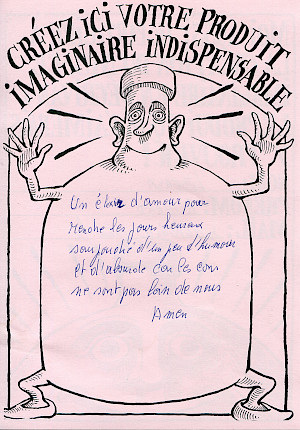 CRÉEZ ICI VOTRE PRODUIT
IMAGINAIRE INDISPENSABLE
Un élixir d'amour pour
rendre les jours heureux
saupoudré d'un peu d'humour
et d'absurde car les cons
ne sont pas loin de nous
Amen